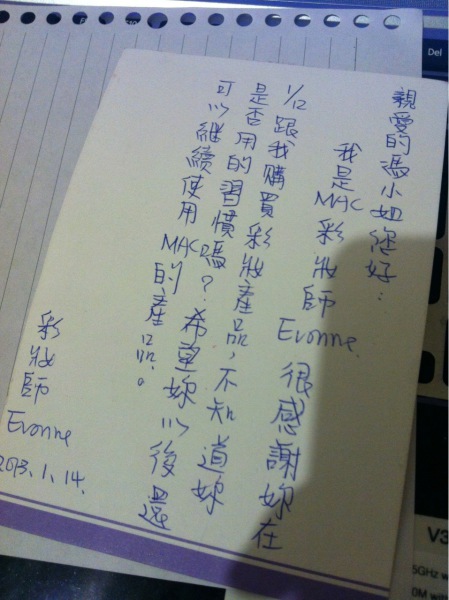 親愛的馮小姐您好：
我是MAC彩妝師Evonne.很感謝妳在
1/12跟我購買彩妝產品，不知道妳
是否用的習慣嗎？希望妳以後還
可以繼續使用MAC的產品。
彩妝師Evonne
2013.1.14.
Del
V3
5GHz w
0M with